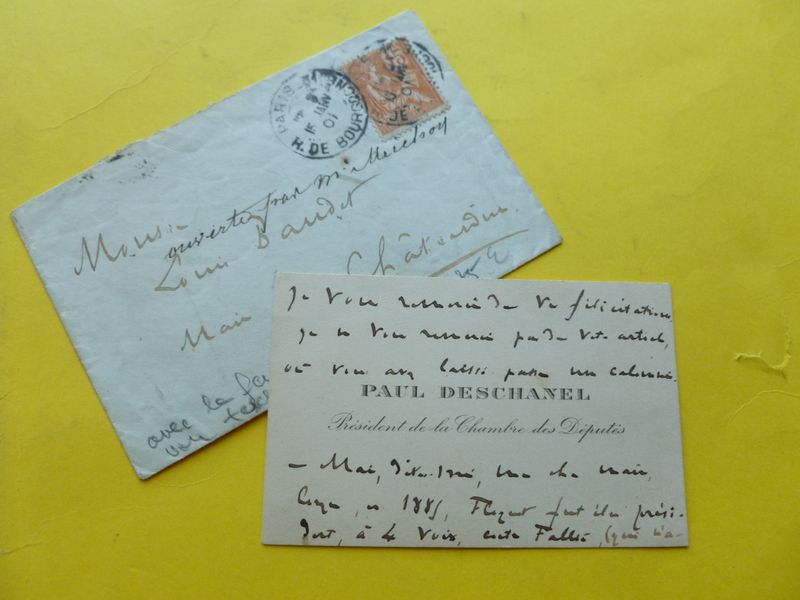 PARIS
JANV
01
R. DE BOURGOGNE
ouverte par
Monsieur
Louis Baudet
Maire
Châteaudun
avec la
Je vous remercie de vos félicitations
je ne vous remercie pas de votre article,
où vous avez laissé passer une calomnie.
PAUL DESCHANEL
Président de la Chambre des Députés
— Mais, dites-moi, mon cher maire,
en 1885, Floquet fut élu prési-
dent, à 4 voix, contre Fallières, (qui n'a-